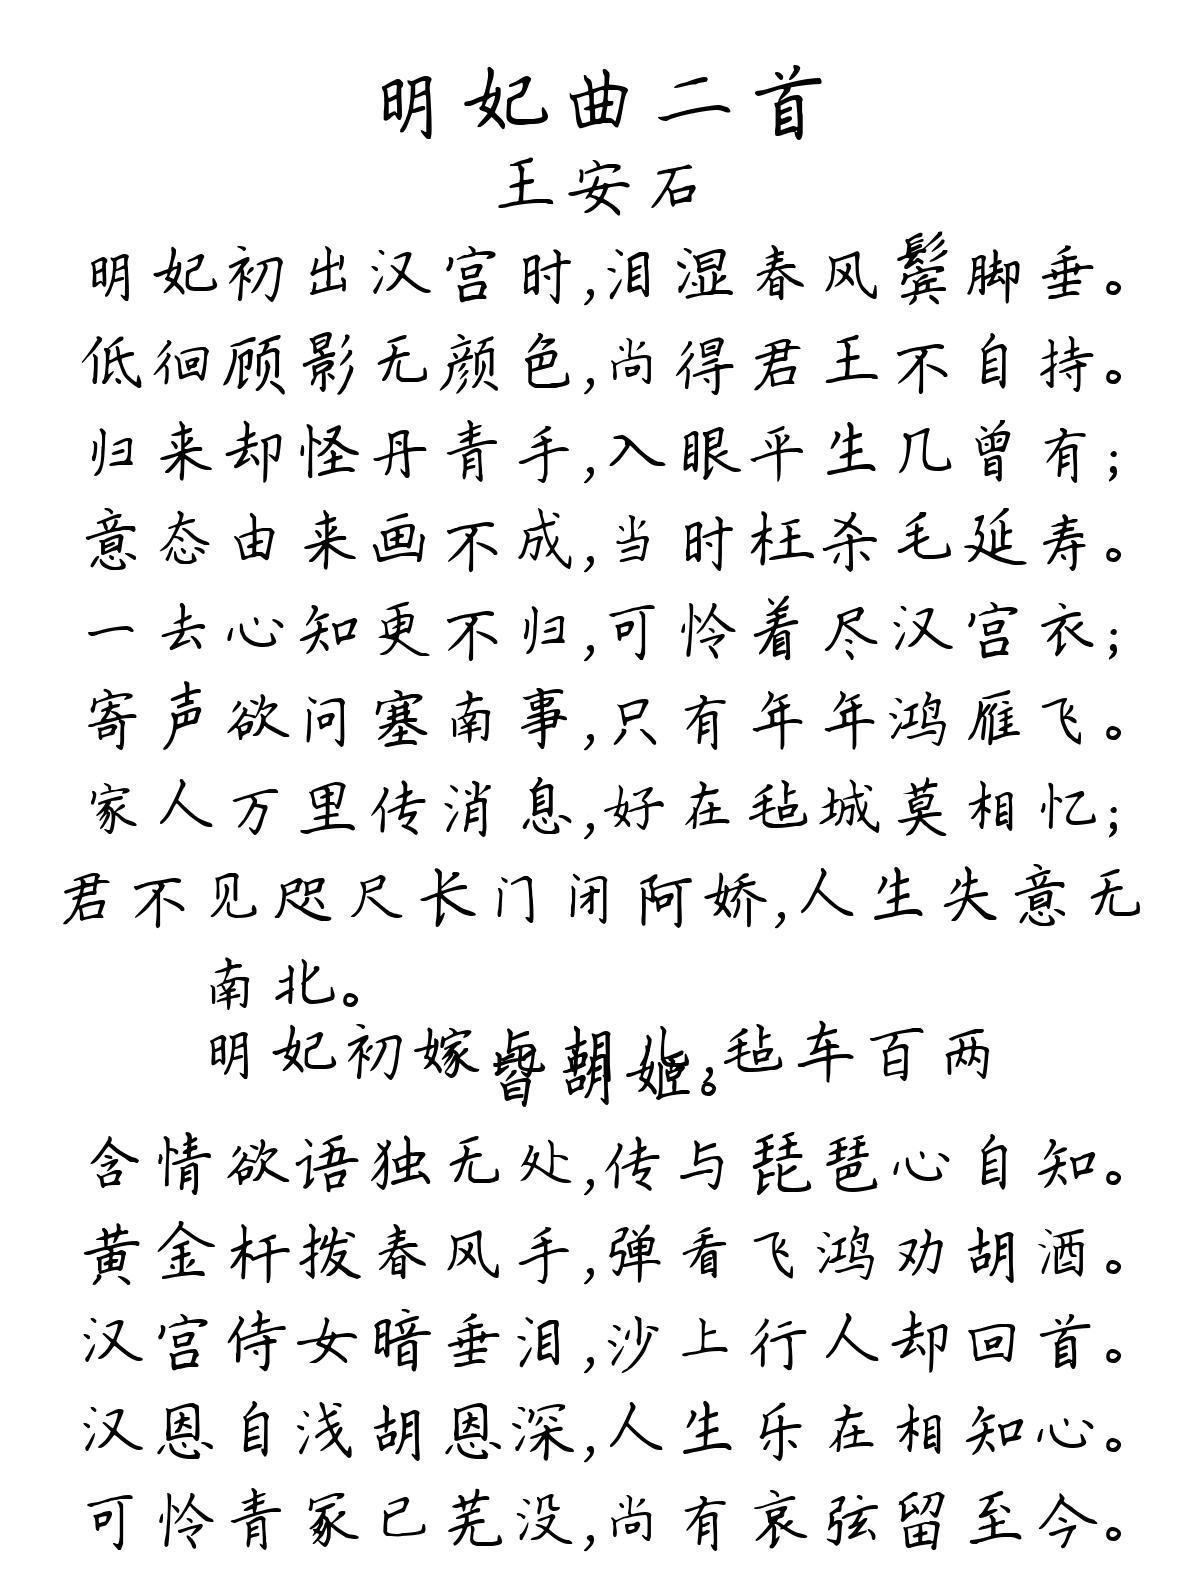 明妃曲二首
王安石
明妃初出汉宫时,泪湿春风鬓脚垂。
低徊顾影无颜色,尚得君王不自持。
归来却怪丹青手,入眼平生几曾有;
意态由来画不成,当时枉杀毛延寿。
一去心知更不归,可怜着尽汉宫衣;
寄声欲问塞南事,只有年年鸿雁飞。
家人万里传消息,好在毡城莫相忆;
君不见咫尺长门闭阿娇,人生失意无
南北。
明妃初嫁与胡儿,毡车百两
皆胡姬。
含情欲语独无处,传与琵琶心自知。
黄金杆拨春风手,弹看飞鸿劝胡酒。
汉宫侍女暗垂泪,沙上行人却回首。
汉恩自浅胡恩深,人生乐在相知心。
可怜青冢已芜没,尚有哀弦留至今。